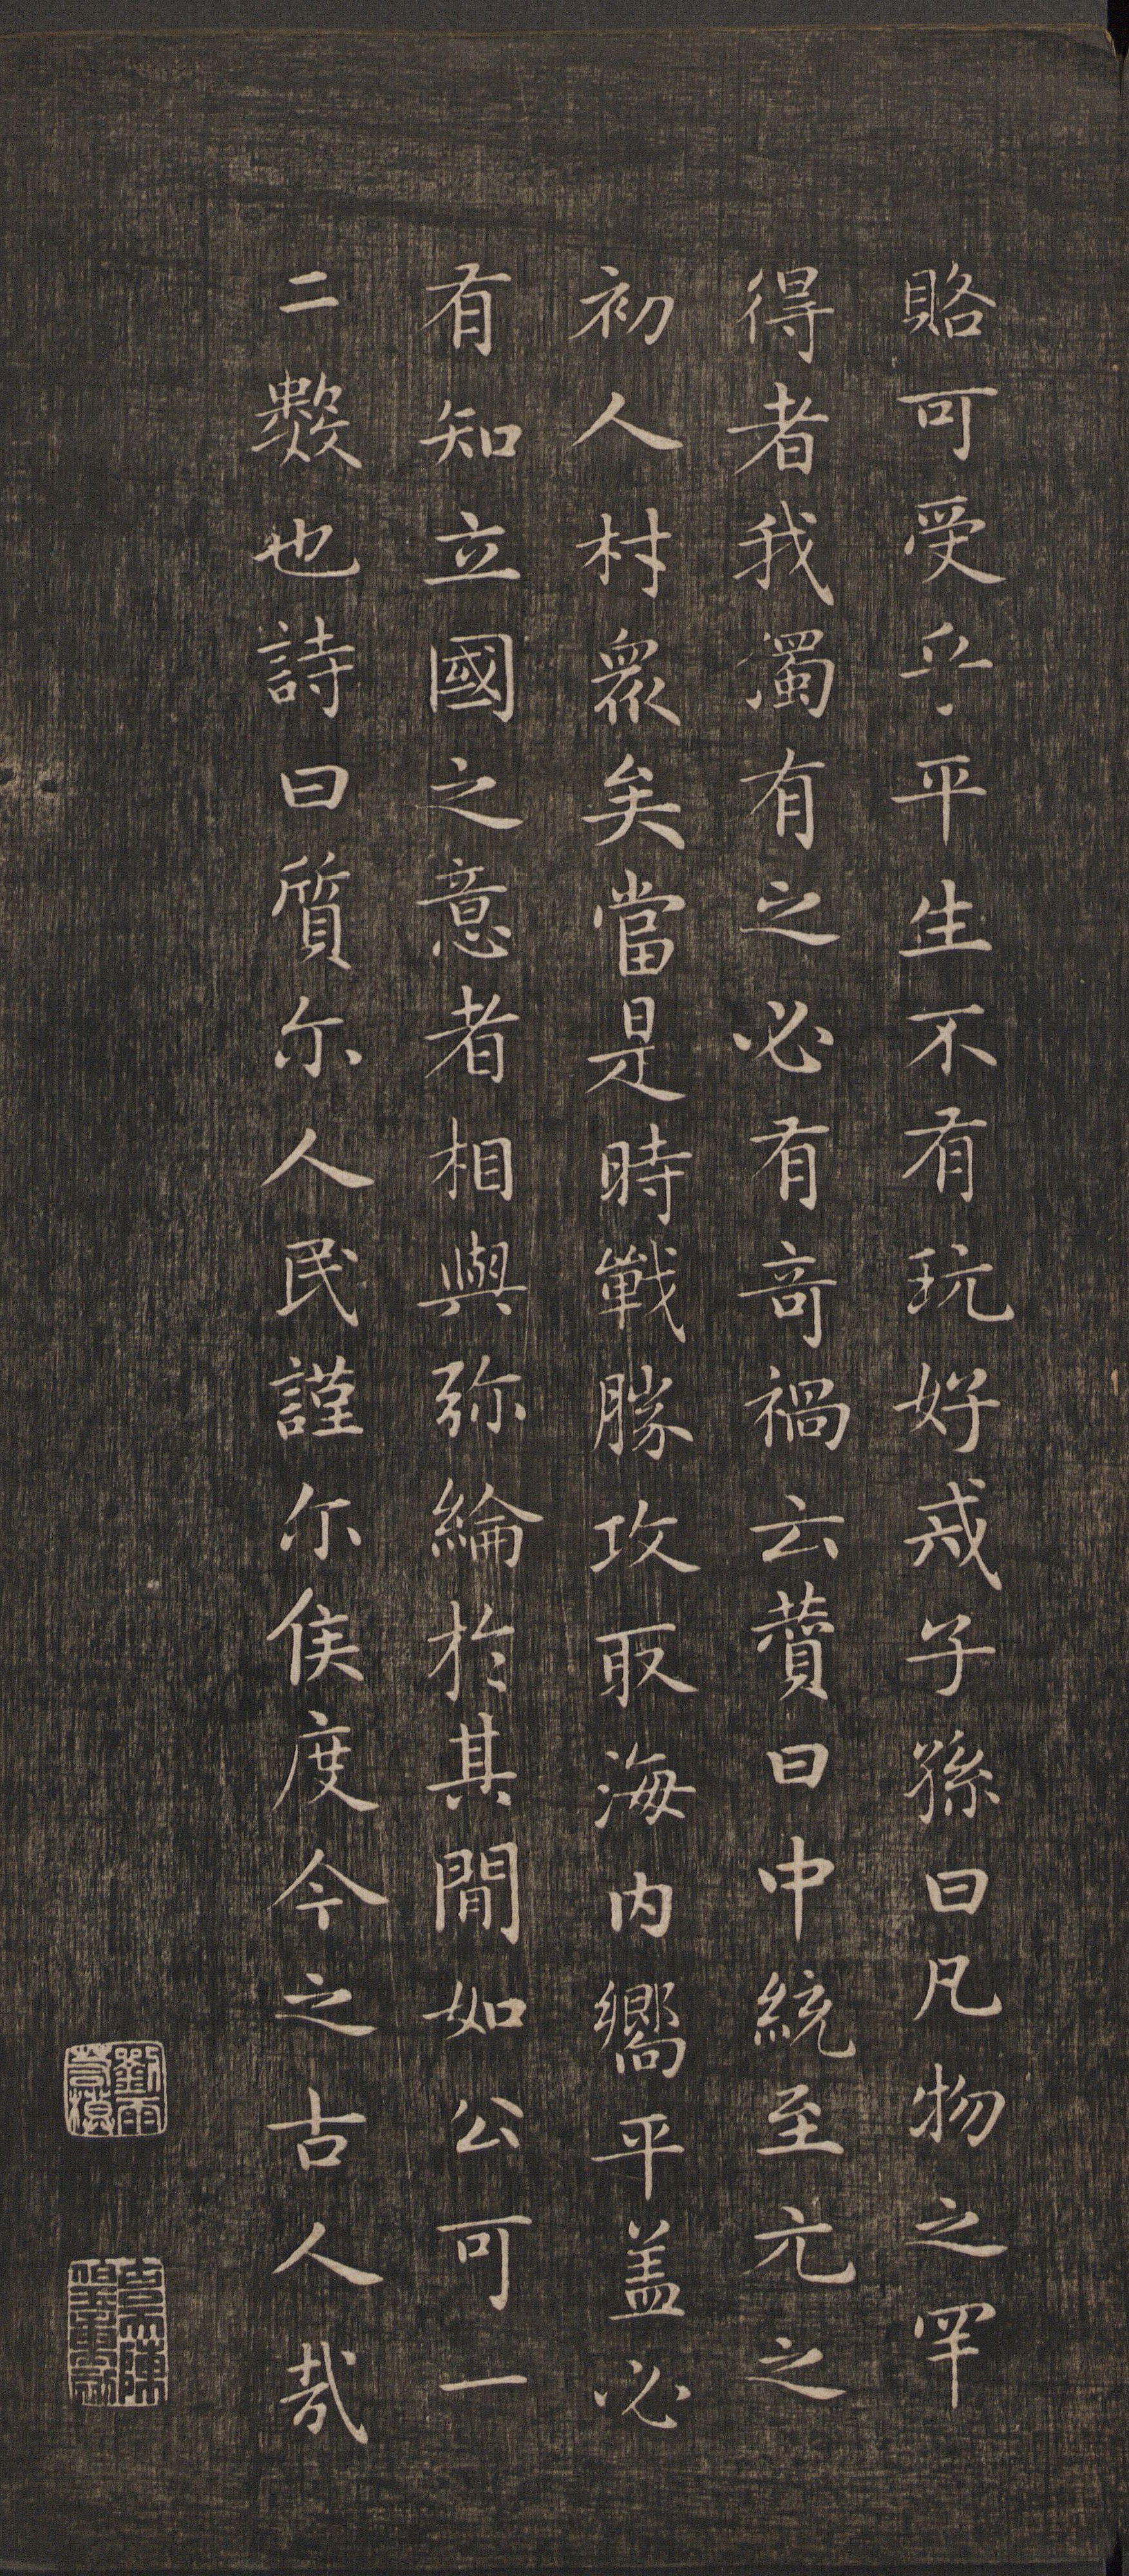 賂可受乎平生不有玩好戒子孫曰凡物之罕
得者我濁有之必有竒禍云蕡曰中統至元之
初人村衆矣當是時戰勝攻取海内嚮平盖必
有知立國之意者相與弥綸於其閒如公可一
二數也詩曰質尔人民謹尔侯度今之古人哉